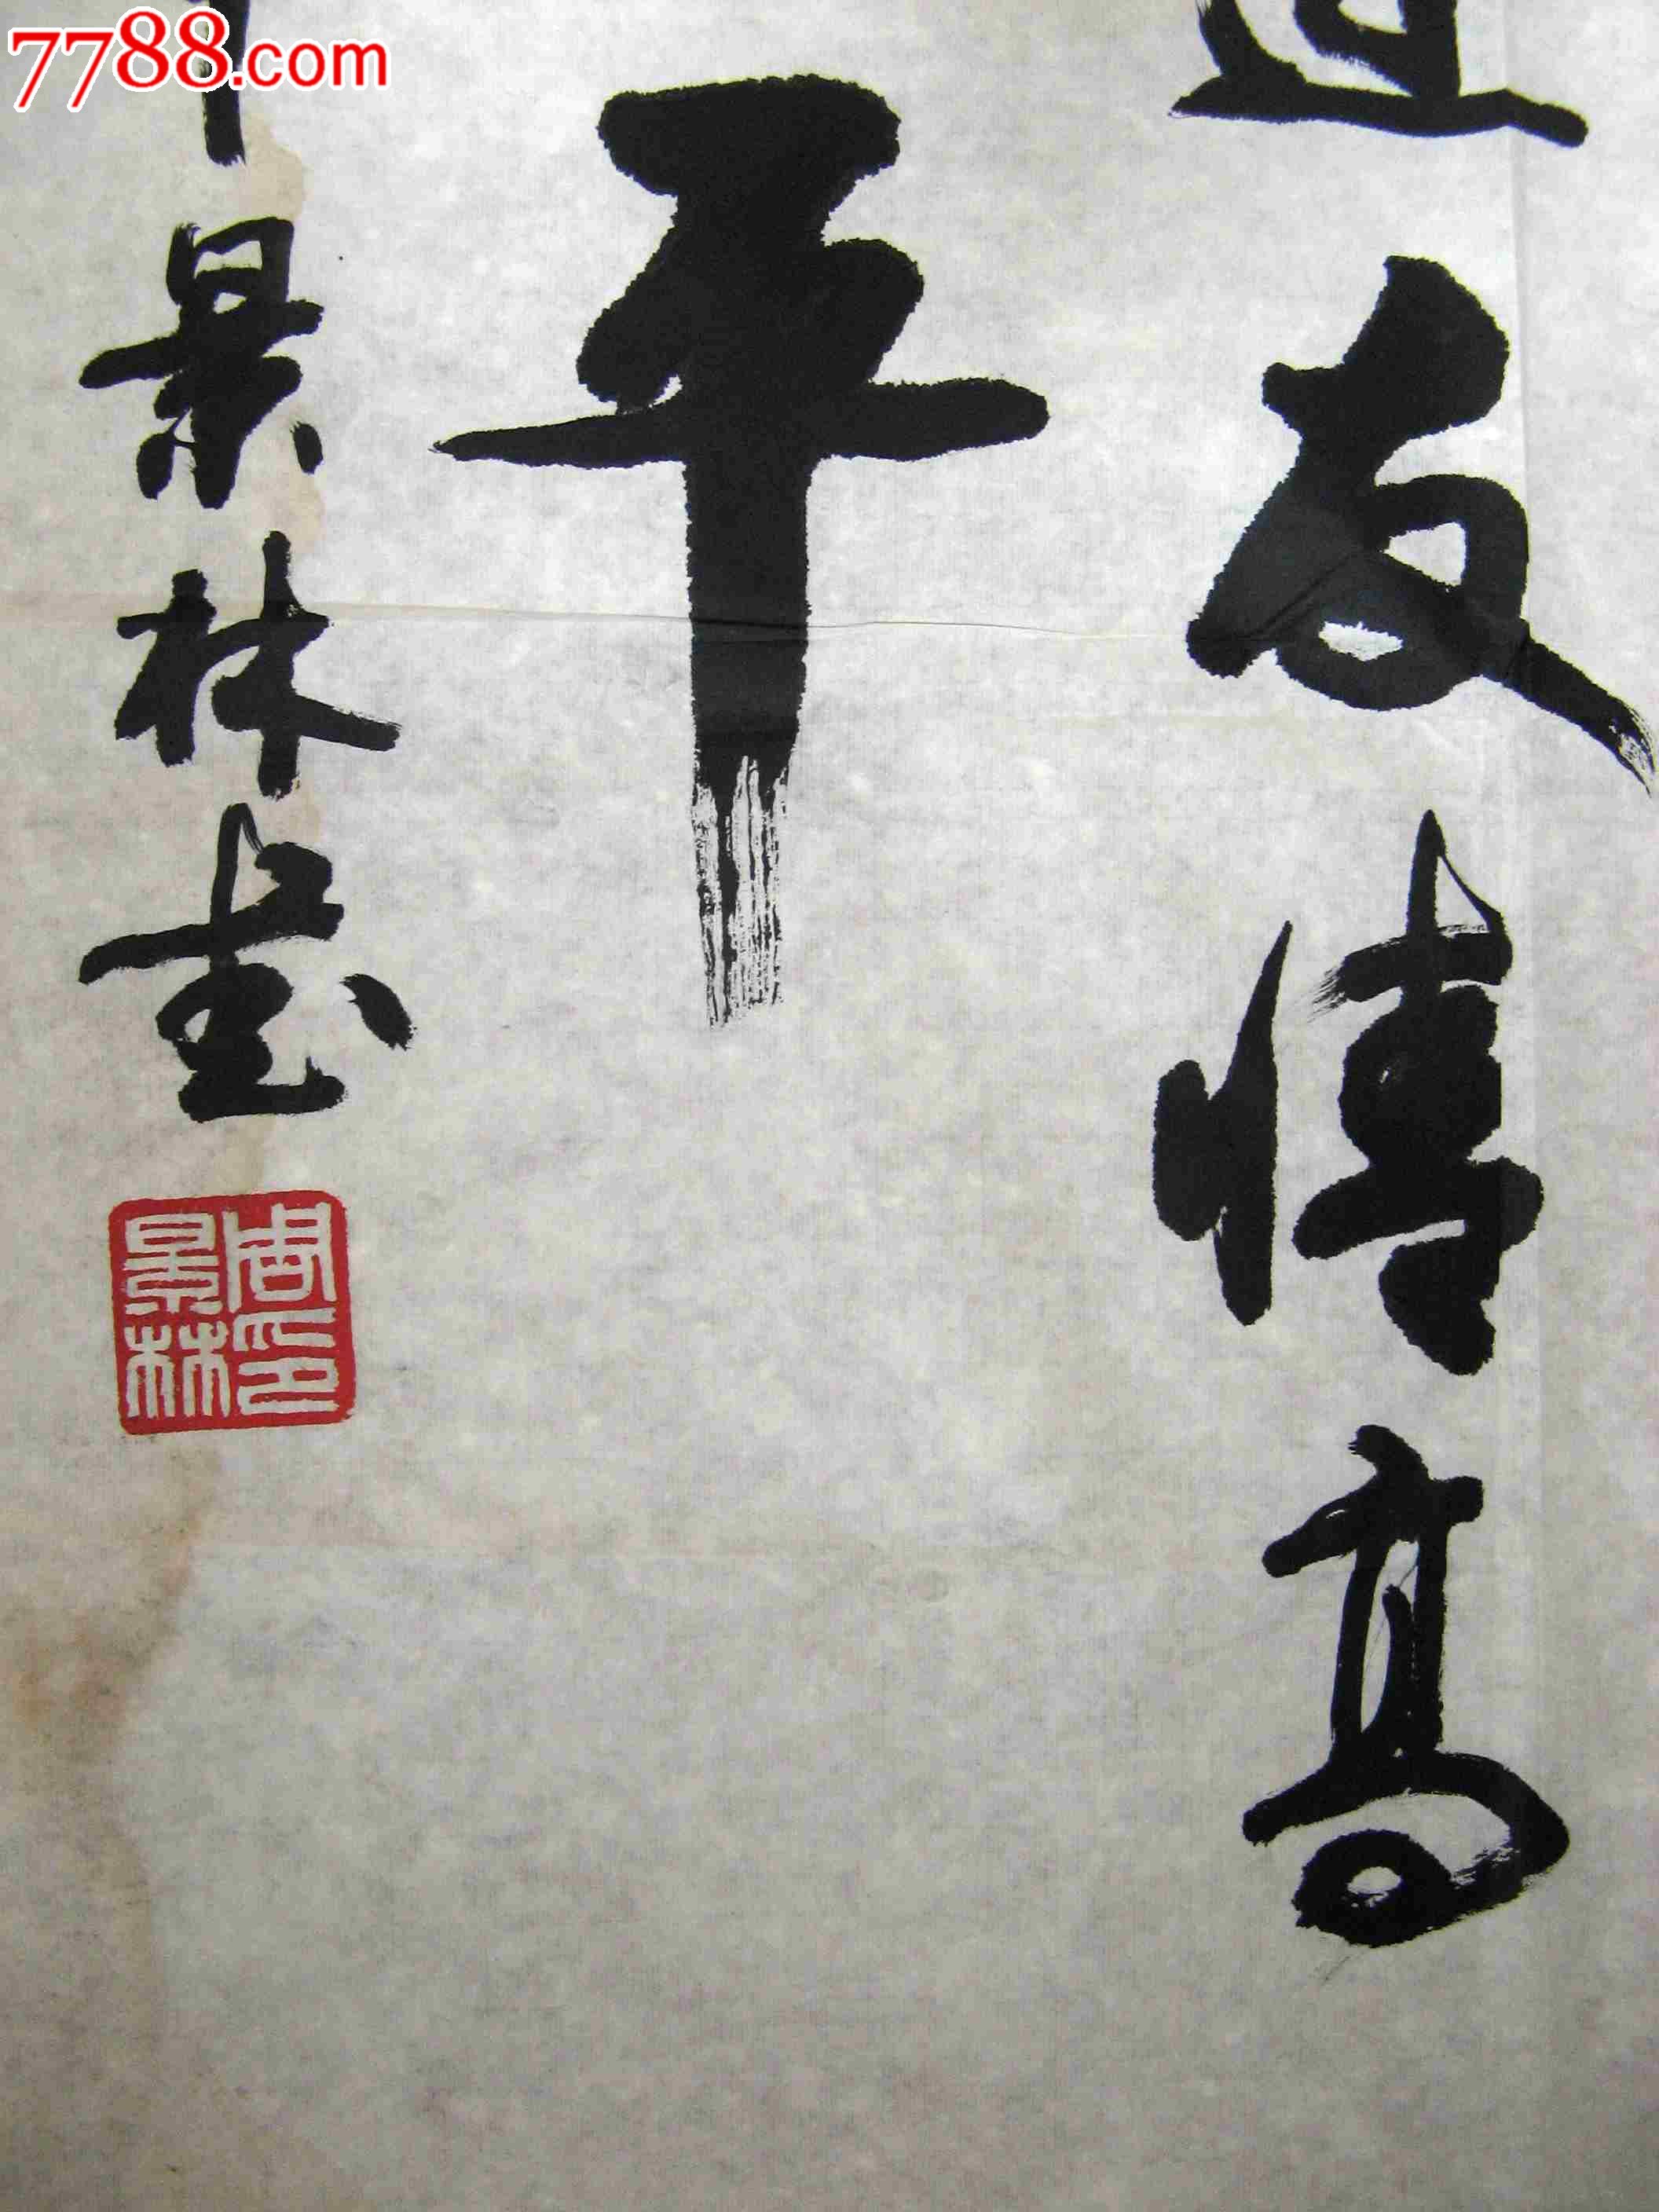 7788.com
友情高
平
景林書
周景林印